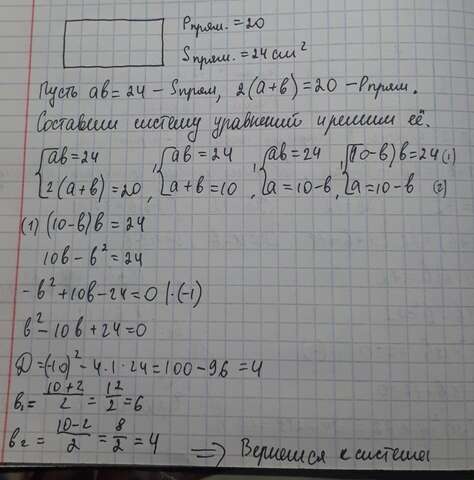 Pпрям. = 20
Sпрям. = 24 см²
Пусть ab = 24 – Sпрям, 2(a+b) = 20 – Pпрям.
Составим систему уравнений и решим её.
{ab = 24, {ab = 24, {ab = 24, {(10-b)b = 24 (1)
{2(a+b) = 20, {a+b = 10, {a = 10-b, {a = 10-b (2)
(1) (10-b)b = 24
10b - b² = 24
-b² + 10b - 24 = 0 |·(-1)
b² - 10b + 24 = 0
D = (-10)² - 4·1·24 = 100 - 96 = 4
b₁ = (10+2)/2 = 12/2 = 6
b₂ = (10-2)/2 = 8/2 = 4 => Вернемся к системе